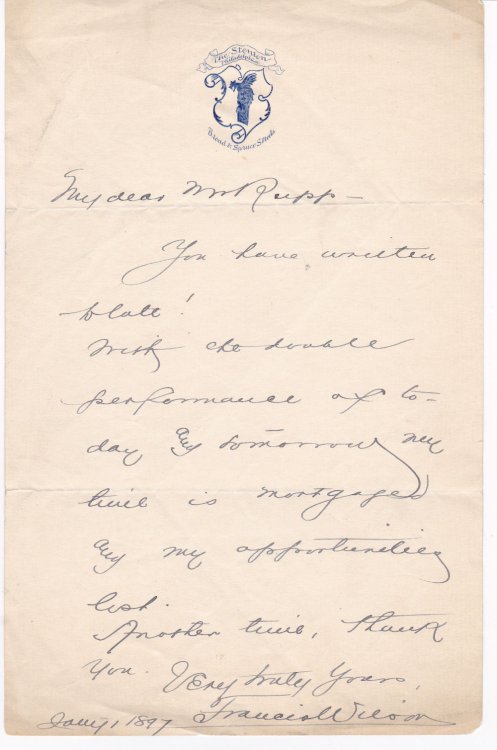 The Stenton
Philadelphia
Broad & Spruce Streets
My dear Mr Rupp —
You have written
to late!
With the double
performance of to-
day and tomorrow my
time is mortgaged
and my opportunities
lost.
Another time, thank
you. Very truly yours,
Jany 1, 1897 Francis Wilson